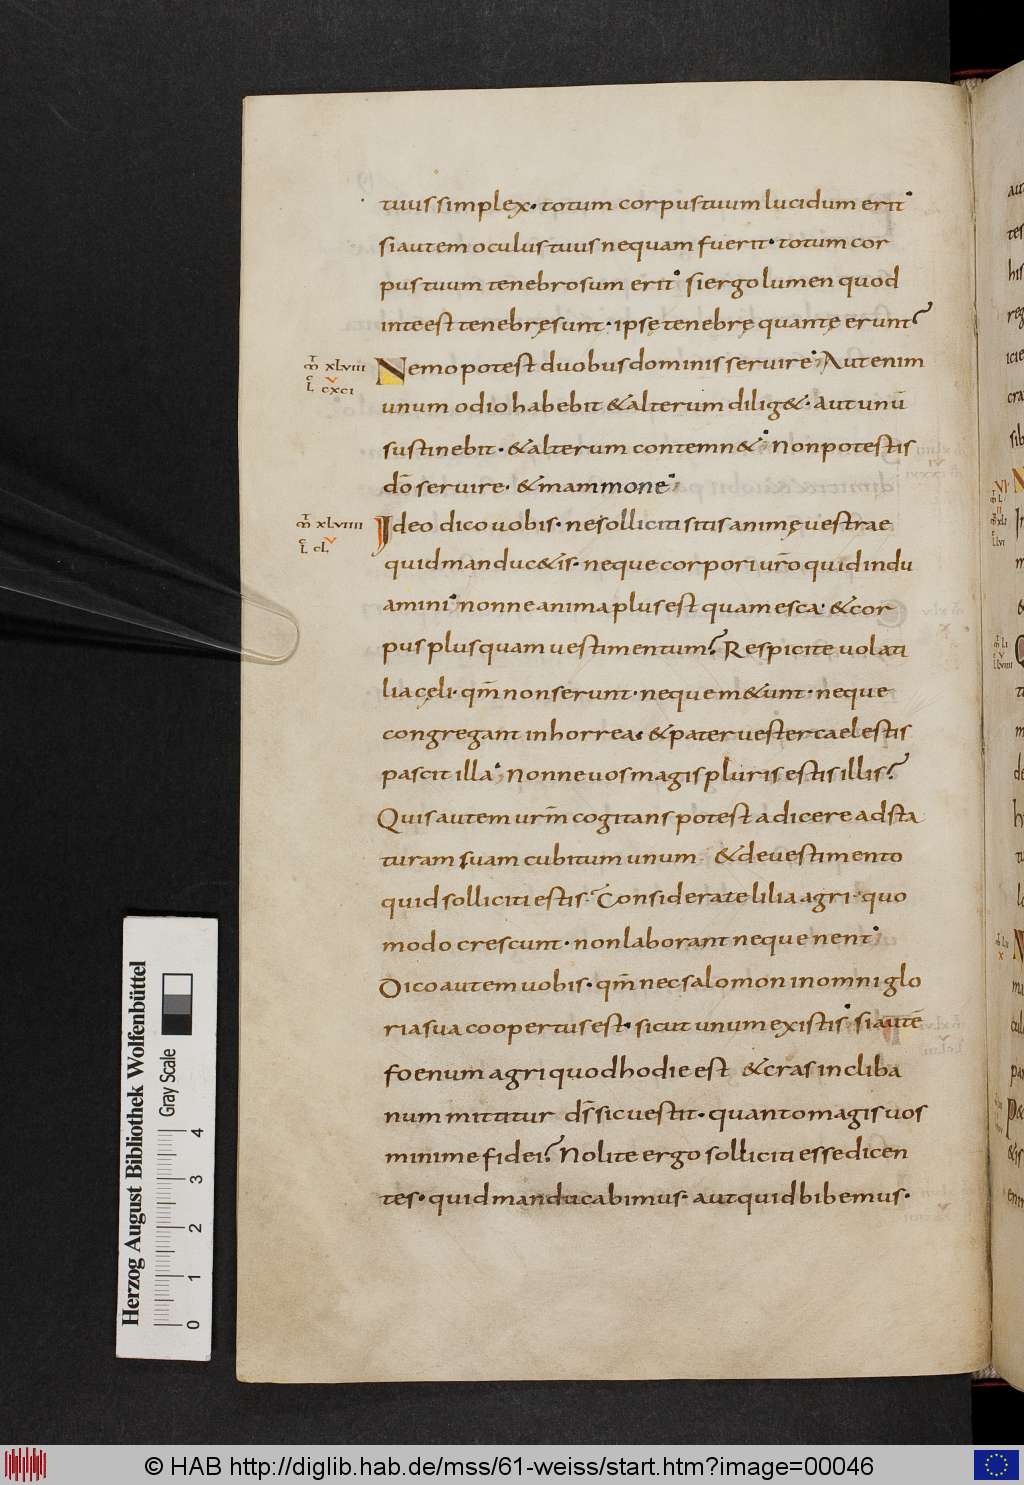 tuus simplex· totum corpus tuum lucidum erit·
si autem oculus tuus nequam fuerit· totum cor
pus tuum tenebrosum erit· si ergo lumen quod
in te est tenebrę sunt· ipsę tenebrę quantę erunt?
m̅ xLVIIII
L cxcı
Nemo potest duobus dominis servire; Aut enim
unum odio habebit & alterum dilig&· aut unū
sustinebit· & alterum contemn&; Non potestis
do̅ servire· & mammone;
m̅ xLVIIII
L cL
Ideo dico vobis· ne solliciti sitis animę vestrae
quid manduc&is· neque corpori vr̅o quid indu
amini· nonne anima plus est quam esca· & cor
pus plus quam vestimentum? Respicite volati
lia cęli· qm̅ non serunt· neque m&unt· neque
congregant in horrea· & pater vester caelestis
pascit illa; Nonne vos magis pluris estis illis?
Quis autem vrm̅ cogitans potest adicere ad sta
turam suam cubitum unum & de vestimento
quid solliciti estis? Considerate lilia agri· quo
modo crescunt· non laborant neque nent;
Dico autem vobis· qm̅ nec salomon in omni glo
ria sua coopertus est· sicut unum ex istis; si autē
foenum agri quod hodie est & cras in cliba
num mittitur ds̅ sic vestit· quanto magis vos
minime fidei? Nolite ergo solliciti esse dicen
tes· quid manducabimus· aut quid bibemus·
Herzog August Bibliothek Wolfenbüttel
Gray Scale
0 1 2 3 4
© HAB http://diglib.hab.de/mss/61-weiss/start.htm?image=00046